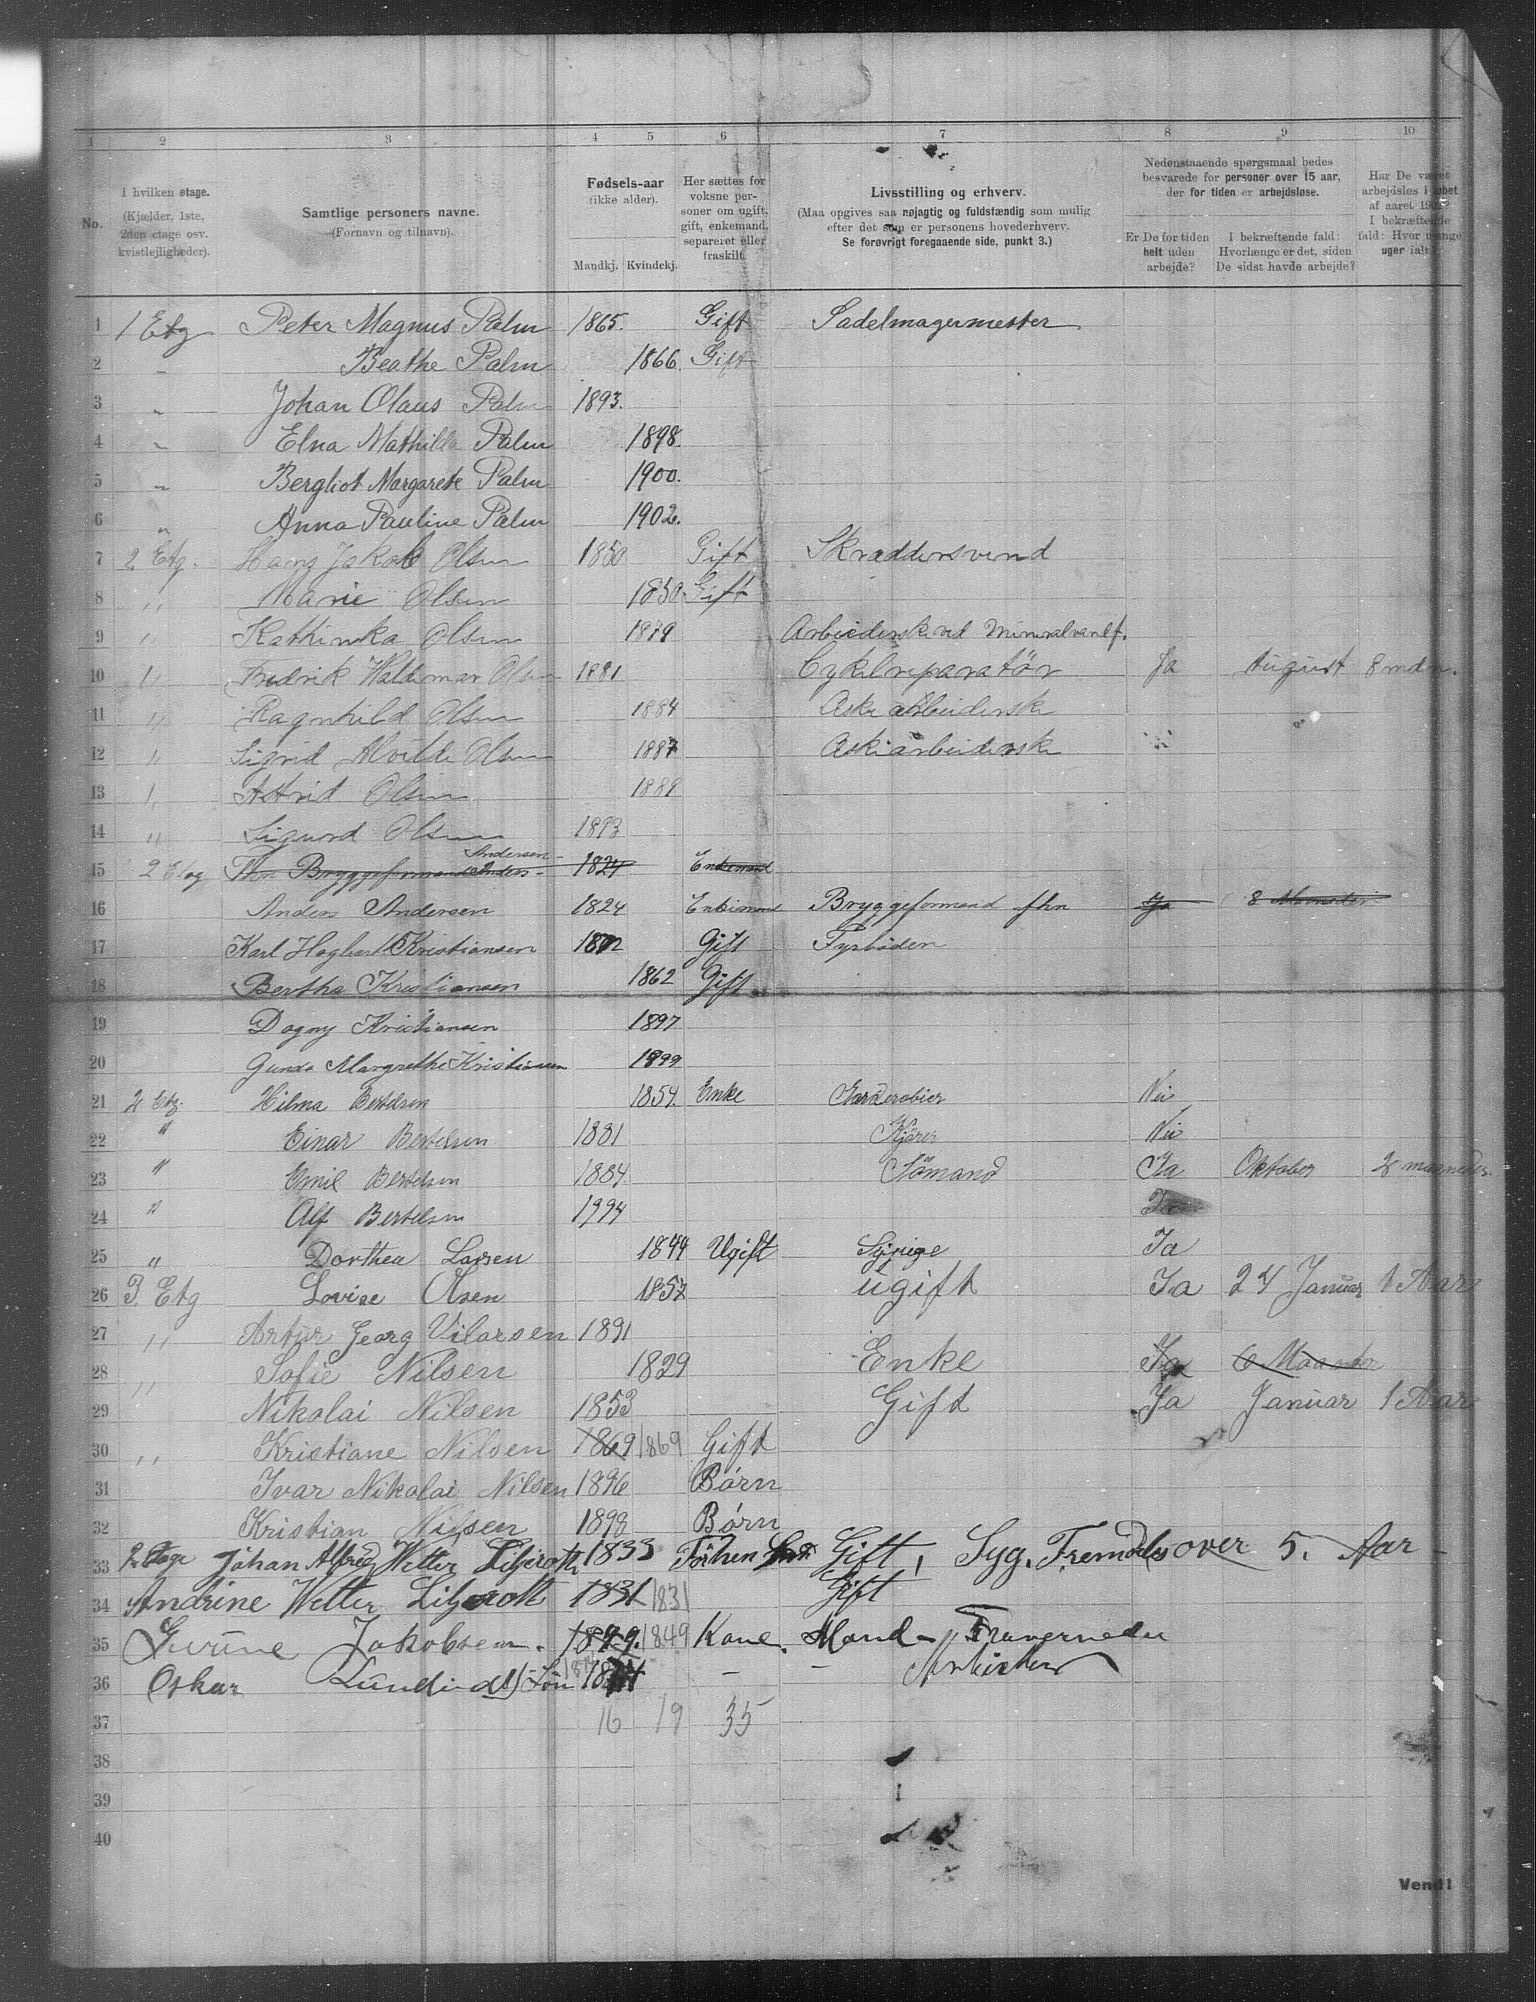 1 2 3 4 5 6 7 8 9 10
No.
I hvilken etage.
(Kjælder, 1ste,
2den etage osv.
kvistlejligheder).
Samtlige personers navne.
(Fornavn og tilnavn).
Fødsels-aar
(ikke alder).
Mandkj. Kvindekj.
Her sættes for
voksne per-
soner om ugift,
gift, enkemand,
separeret eller
fraskilt.
Livsstilling og erhverv.
(Maa opgives saa nøjagtig og fuldstændig som mulig
efter det som er personens hovederhverv.
Se forøvrigt foregaaende side, punkt 3.)
Nedenstaaende spørgsmaal bedes
besvarede for personer over 15 aar,
der for tiden er arbejdsløse.
Er De for tiden
helt uden
arbejde?
I bekræftende fald:
Hvorlænge er det, siden
De sidst havde arbejde?
Har De været
arbejdsløs i løbet
af aaret
I bekræftende
fald: Hvor mange
uger ialt?
1 1 Etg Peter Magnus Palm 1865. Gift Sadelmagermester
2 " Beathe Palm 1866. Gift
3 " Johan Olaus Palm 1893.
4 " Elna Mathilda Palm 1898.
5 " Bergliot Margarete Palm 1900.
6 " Anna Pauline Palm 1902.
7 2 Etg. Hans Jakob Olsen 1850 Gift Skræddersvend
8 " Marie Olsen 1850. Gift
9 " Kathinka Olsen 1879 Arbeiderske ved Mineralvandf.
10 " Fredrik Waldemar Olsen 1881 Cykelreparatör Ja August 8 mdn.
11 " Ragnhild Olsen 1884 Aske arbeiderske
12 " Sigrid Alvilde Olsen 1887 Aske arbeiderske
13 " Astrid Olsen 1889
14 " Sigurd Olsen 1893
Andersen
15 2 Etag Bryggeformand Anders 1824 Enkemand
16 Anders Andersen 1824 Enkemand Bryggeformand fhn Ja 8 Maaneder
17 Karl Hagbart Kristiansen Gift Fyrbøder
18 Bertha Kristiansen 1862 Gift
19 Dagny Kristiansen 1897
20 Gunda Margrethe Kristiansen 1899
21 2 Etg. Hilma Bertelsen 1854. Enke Garderobier Nei
22 " Einar Bertelsen 1881 Kjører Nei
23 " Emil Bertelsen 1884. Sömand Ja Oktober 2 maaneder.
24 " Alf Bertelsen 1994 Ja
25 " Dorthea Larsen 1844 Ugift Syrige Ja
26 3. Etg Lovise Olsen 1857 ugift Ja 24 Januar 1 Aar
27 " Artur Georg Vilarsen 1891
28 " Sofie Nilsen 1829 Enke Ja 6 Maaneder
29 Nikolai Nilsen 1853 Gift Ja Januar 1 Aar
30 " Kristiane Nilsen 1869 1869 Gift
31 Ivar Nikolai Nilsen 1896 Børn
32 Kristian Nilsen 1898 Børn
33 2 Etage Johan Alfred Wetter Liljeroth 1833 Gift, Syg. Fremdeles over 5. Aar
34 Andrine Wetter Liljeroth 1831 1831 Gift
35 Jakobsen. 1849. 1849 Kone. Mand
36 Oskar Søn - -
37 16 19 35
38
39
40
Vend!